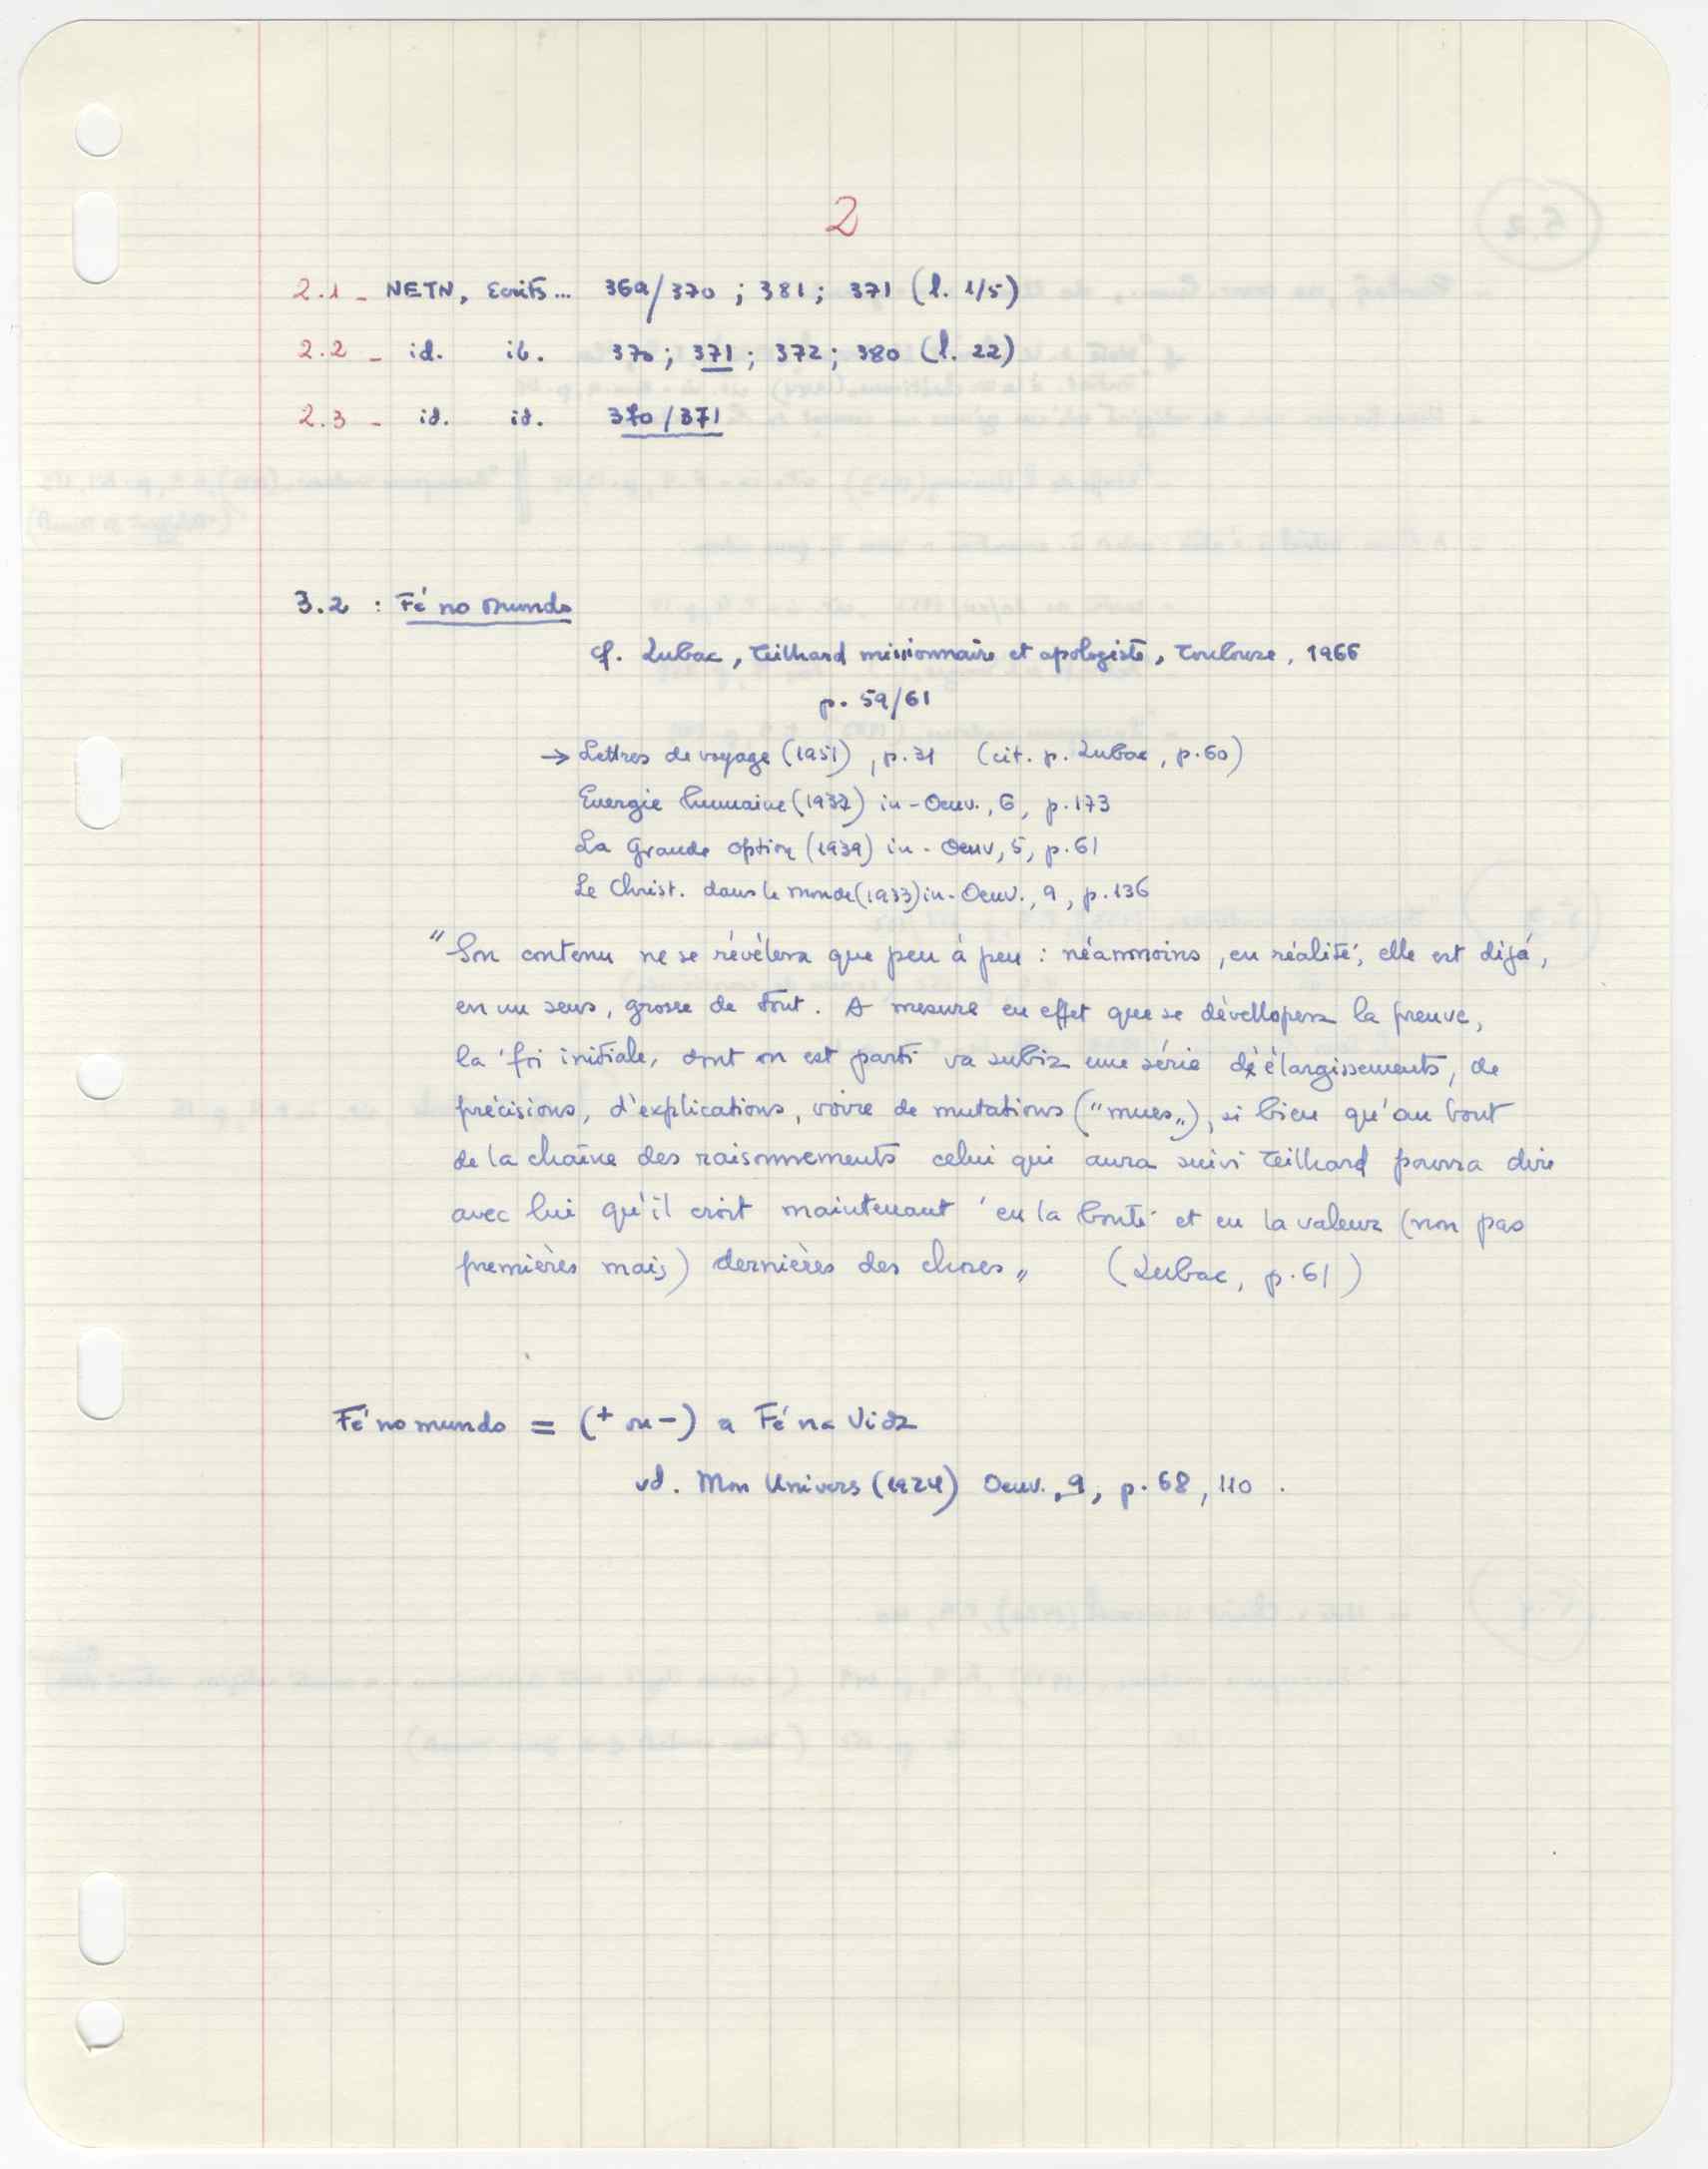 2
2.1 - NETN, Ecrits... 369/370 ; 381 ; 371 (l. 1/5)
2.2 - id. ib. 370 ; 371 ; 372 ; 380 (l. 22)
2.3 - id. id. 370/371
3.2 : Fé no mundo
cf. Lubac, Teilhard missionnaire et apologiste, Toulouse, 1966
p. 59/61
→ Lettres de voyage (1951), p. 31 (cit. p. Lubac, p. 60)
Energie humaine (1937) in - Oeuv., 6, p. 173
La Grande option (1939) in - Oeuv, 5, p. 61
Le Christ. dans le monde (1933) in - Oeuv., 9, p. 136
"Son contenu ne se révèlera que peu à peu : néanmoins, en réalité, elle est déjà,
en un sens, grosse de tout. A mesure en effet que se dévellopera la preuve,
la 'foi initiale, dont on est parti va subir une série d'élargissements, de
précisions, d'explications, voire de mutations ("mues"), si bien qu'au bout
de la chaîne des raisonnements celui qui aura suivi Teilhard pourra dire
avec lui qu'il croit maintenant 'en la bonté et en la valeur (non pas
premières mais) dernières des choses" (Lubac, p. 61)
Fé no mundo = (+ ou -) a Fé na Vida
vd. Mon Univers (1924) Oeuv., 9, p. 68, 110.